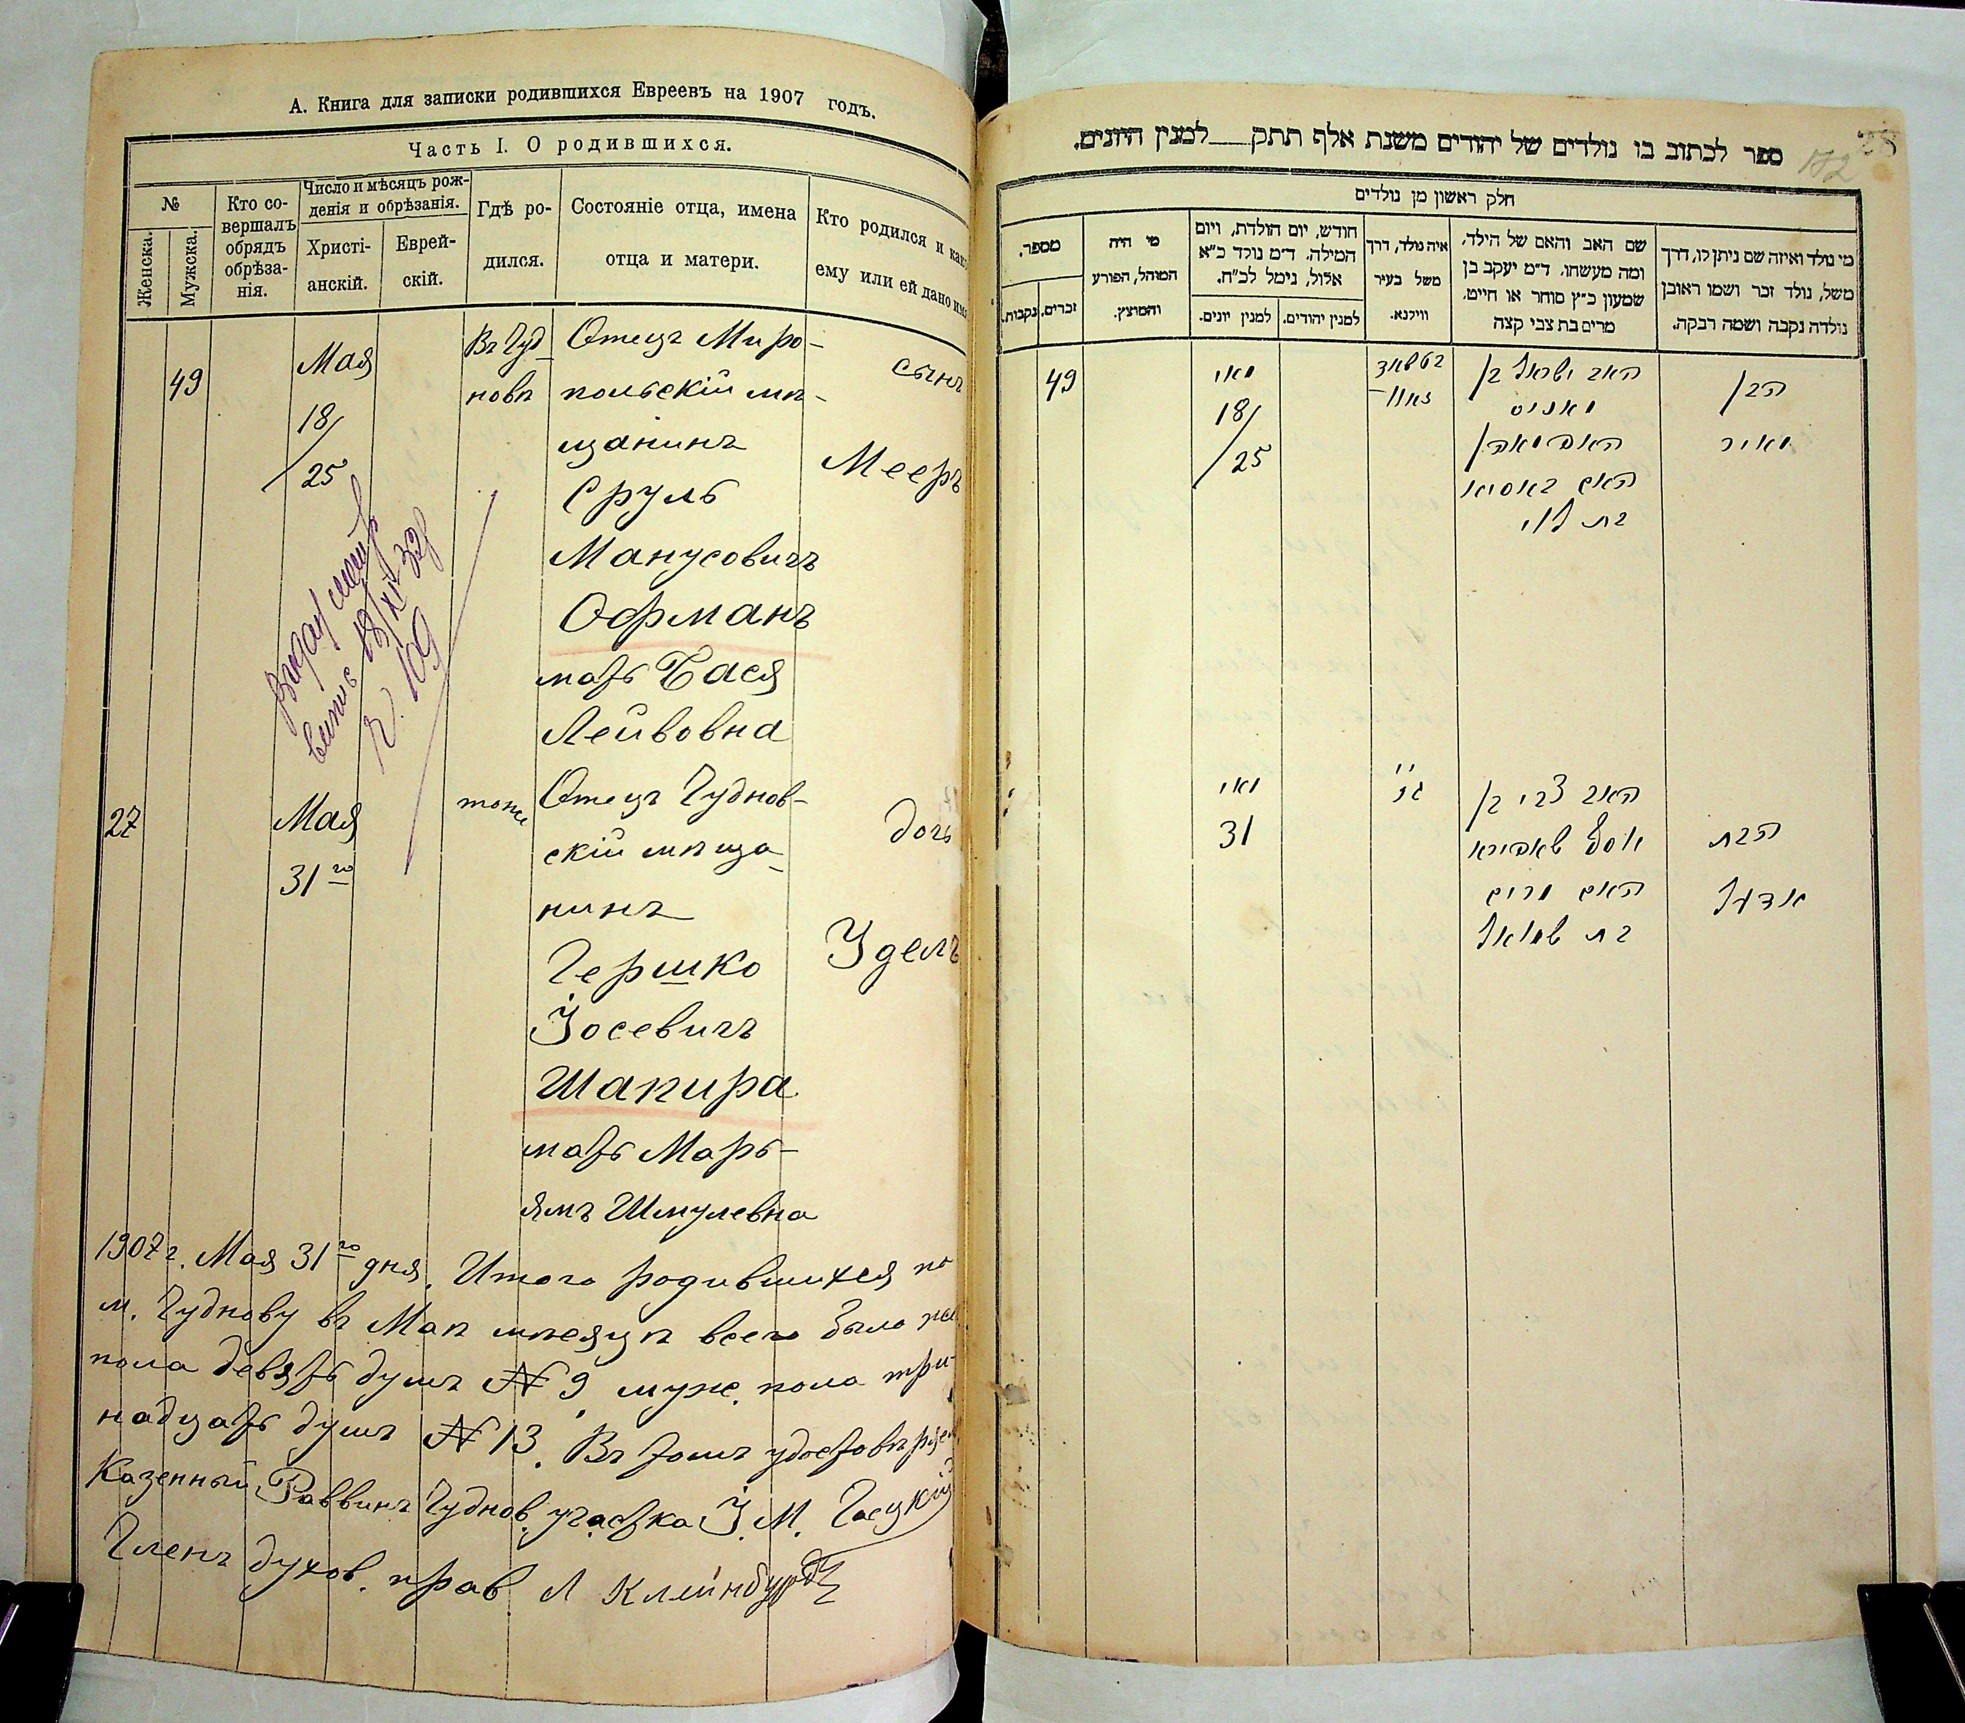 А. Книга для записки родившихся Евреевъ на 1907 годъ.
Часть I. О родившихся.
№
Женска.
Мужска.
Кто со-
вершалъ
обрядъ
обрѣза-
нія.
Число и мѣсяцъ рож-
денія и обрѣзанія.
Христі-
анскій.
Еврей-
скій.
Гдѣ ро-
дился.
Состояніе отца, имена
отца и матери.
Кто родился и как
ему или ей дано им
49
Мая
18/
/25
Въ Чуд-
новѣ
Отецъ Миро-
польскій мѣ-
щанинъ
Сруль
Манусовичъ
Офманъ
мать Бася
Лейвовна
сынъ
Мееръ
18/XI 32
109
27
Мая
31го
тоже
Отецъ Чуднов-
скій мѣща-
нинъ
Гершко
Іосевичъ
Шапира
мать Марь-
ямъ Шмулевна
дочь
Удель
1907 г. Мая 31го дня. Итого родившихся по
м. Чуднову въ Маѣ мѣсяцѣ всего было
пола девять душъ № 9, муже. пола три-
надцать душъ № 13. Въ томъ
Казенный Раввинъ Чуднов. участка І. М.
Членъ духов. прав Л Клейнбурд
ספר לכתוב בו נולדים של יהודים משנת אלף תתק למנין היונים.
182
28
חלק ראשון מן נולדים
מספר.
נקבות.
זכרים.
מי היה
המוהל, הפורע
והמוצץ.
חודש, יום הולדת, ויום
המילה. ד״מ נולד כ״א
אלול, נימל לכ״ח.
למנין יונים.
למנין יהודים.
איה נולד, דרך
משל בעיר
ווילנא.
שם האב והאם של הילד,
ומה מעשהו. ד״מ יעקב בן
שמעון כ״ץ סוחר או חייט,
מרים בת צבי קצה
מי נולד ואיזה שם ניתן לו, דרך
משל, נולד זכר ושמו ראובן
נולדה נקבה ושמה רבקה.
49
מאי
18/
/25
בטשוד
נאוו
האב ישראל בן
מאניס
האפמאן
האם באסיא
בת לוי
הבן
מאיר
מאי
31
האב צבי בן
יוסף שאפירא
האם מרים
בת שמואל
הבת
אדעל